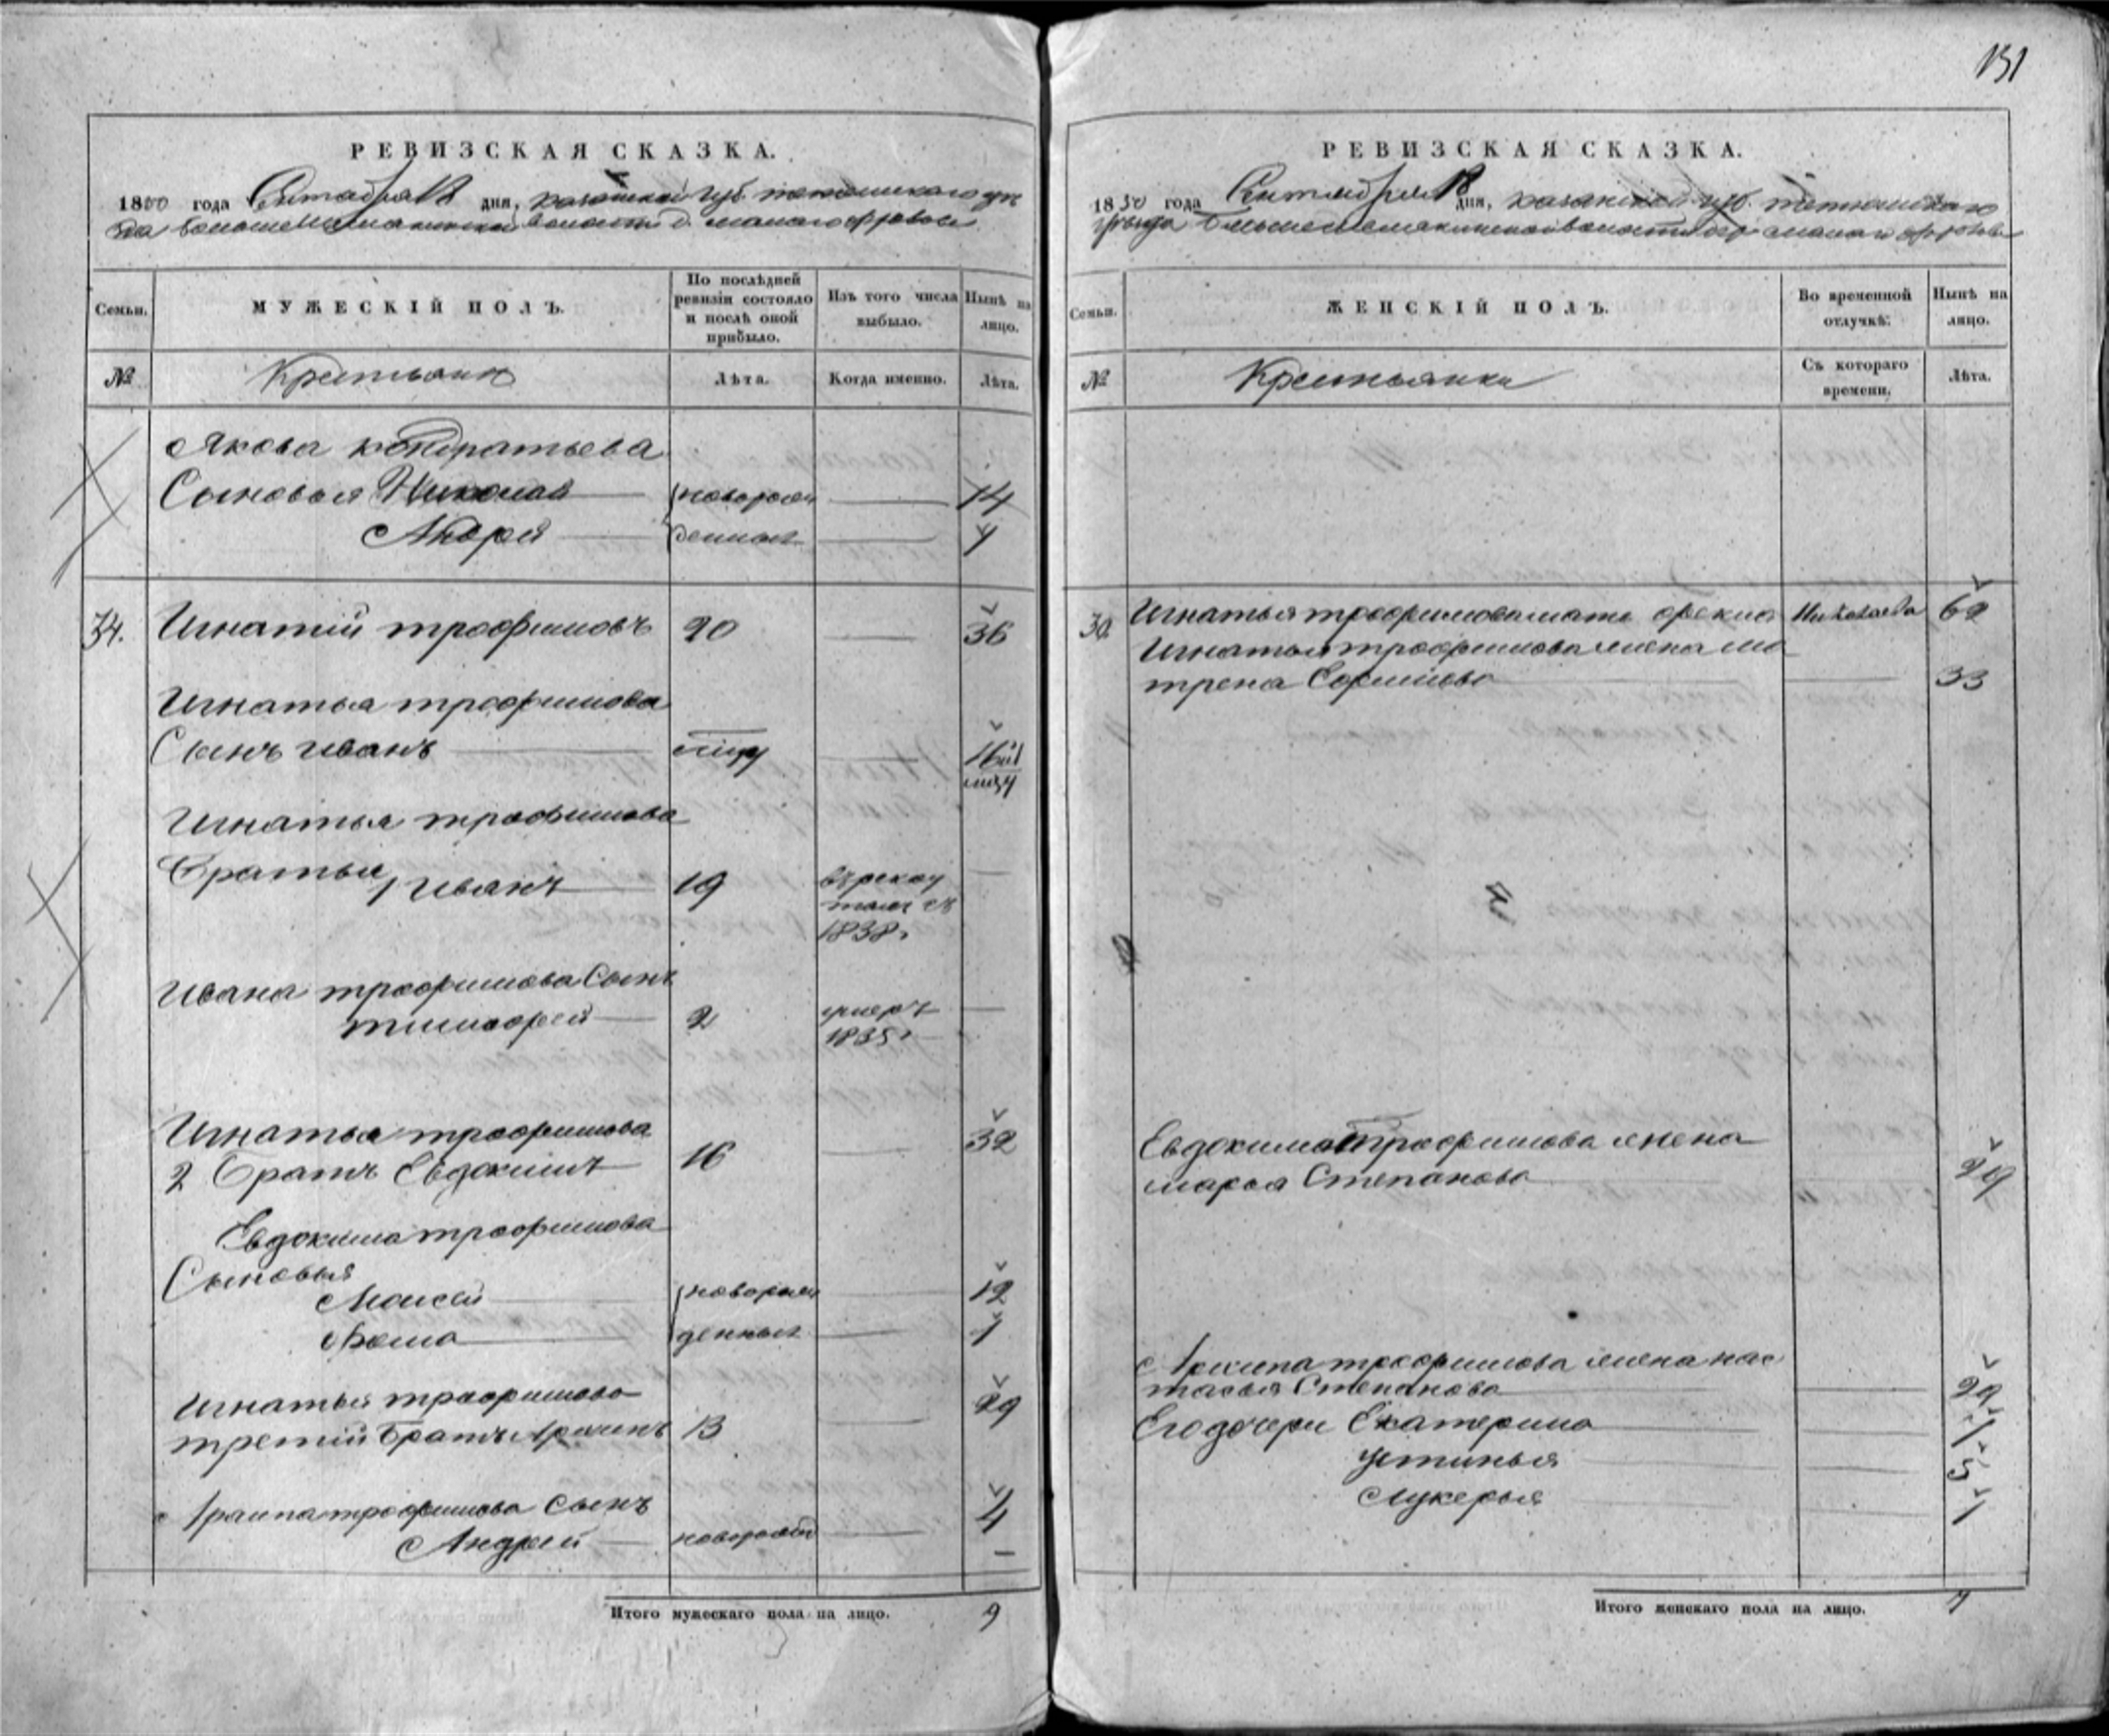 131
РЕВИЗСКАЯ СКАЗКА.
1850 года Сентября 18 дня, казанской губ. тетюшскаго уѣз
да волости д.
Семьи.
МУЖЕСКІЙ ПОЛЪ.
По послѣдней ревизіи состояло и послѣ оной прибыло.
Изъ того числа выбыло.
Нынѣ на лицо.
№
Крестьяне
Лѣта.
Когда именно.
Лѣта.
Якова кондратьева
Сыновья Николай новорож 14
Андрей денные
34. Игнатий трофимовъ 20 36
Игнатья трофимова
Сынъ иванъ 16
Игнатья трофимова
Братья, 1 иванъ 19 въ рекру
тахъ съ
1838г
ивана трофимова Сынъ
тимофей 2 умеръ
1835г
Игнатья трофимова 32
2 Братъ Евдокимъ 16
Евдокима трофимова
Сыновья
Моисей новорож 12
Фома денные 1
Игнатья трофимова 29
третий Братъ Архипъ 13
Архипа трофимова Сынъ 4
Андрей новорожд
Итого мужескаго пола на лицо. 9
РЕВИЗСКАЯ СКАЗКА.
1850 года Сентября 18 дня, казанской губ. тетюшскаго
уѣзда волости
Семьи.
ЖЕНСКІЙ ПОЛЪ.
Во временной отлучкѣ.
Нынѣ на лицо.
№
Крестьянки
Съ котораго времени.
Лѣта.
Игнатья трофимова мать фекла Николаева 62
Игнатья трофимова жена ма
трена 33
Евдокима трофимова жена
марья Степанова 29
Архипа трофимова жена нас
тасья Степанова 29
Его дочери Екатерина
устинья 5
Лукерья 1
Итого женскаго пола на лицо. 7